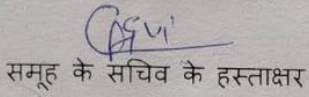 समूह के सचिव के हस्ताक्षर